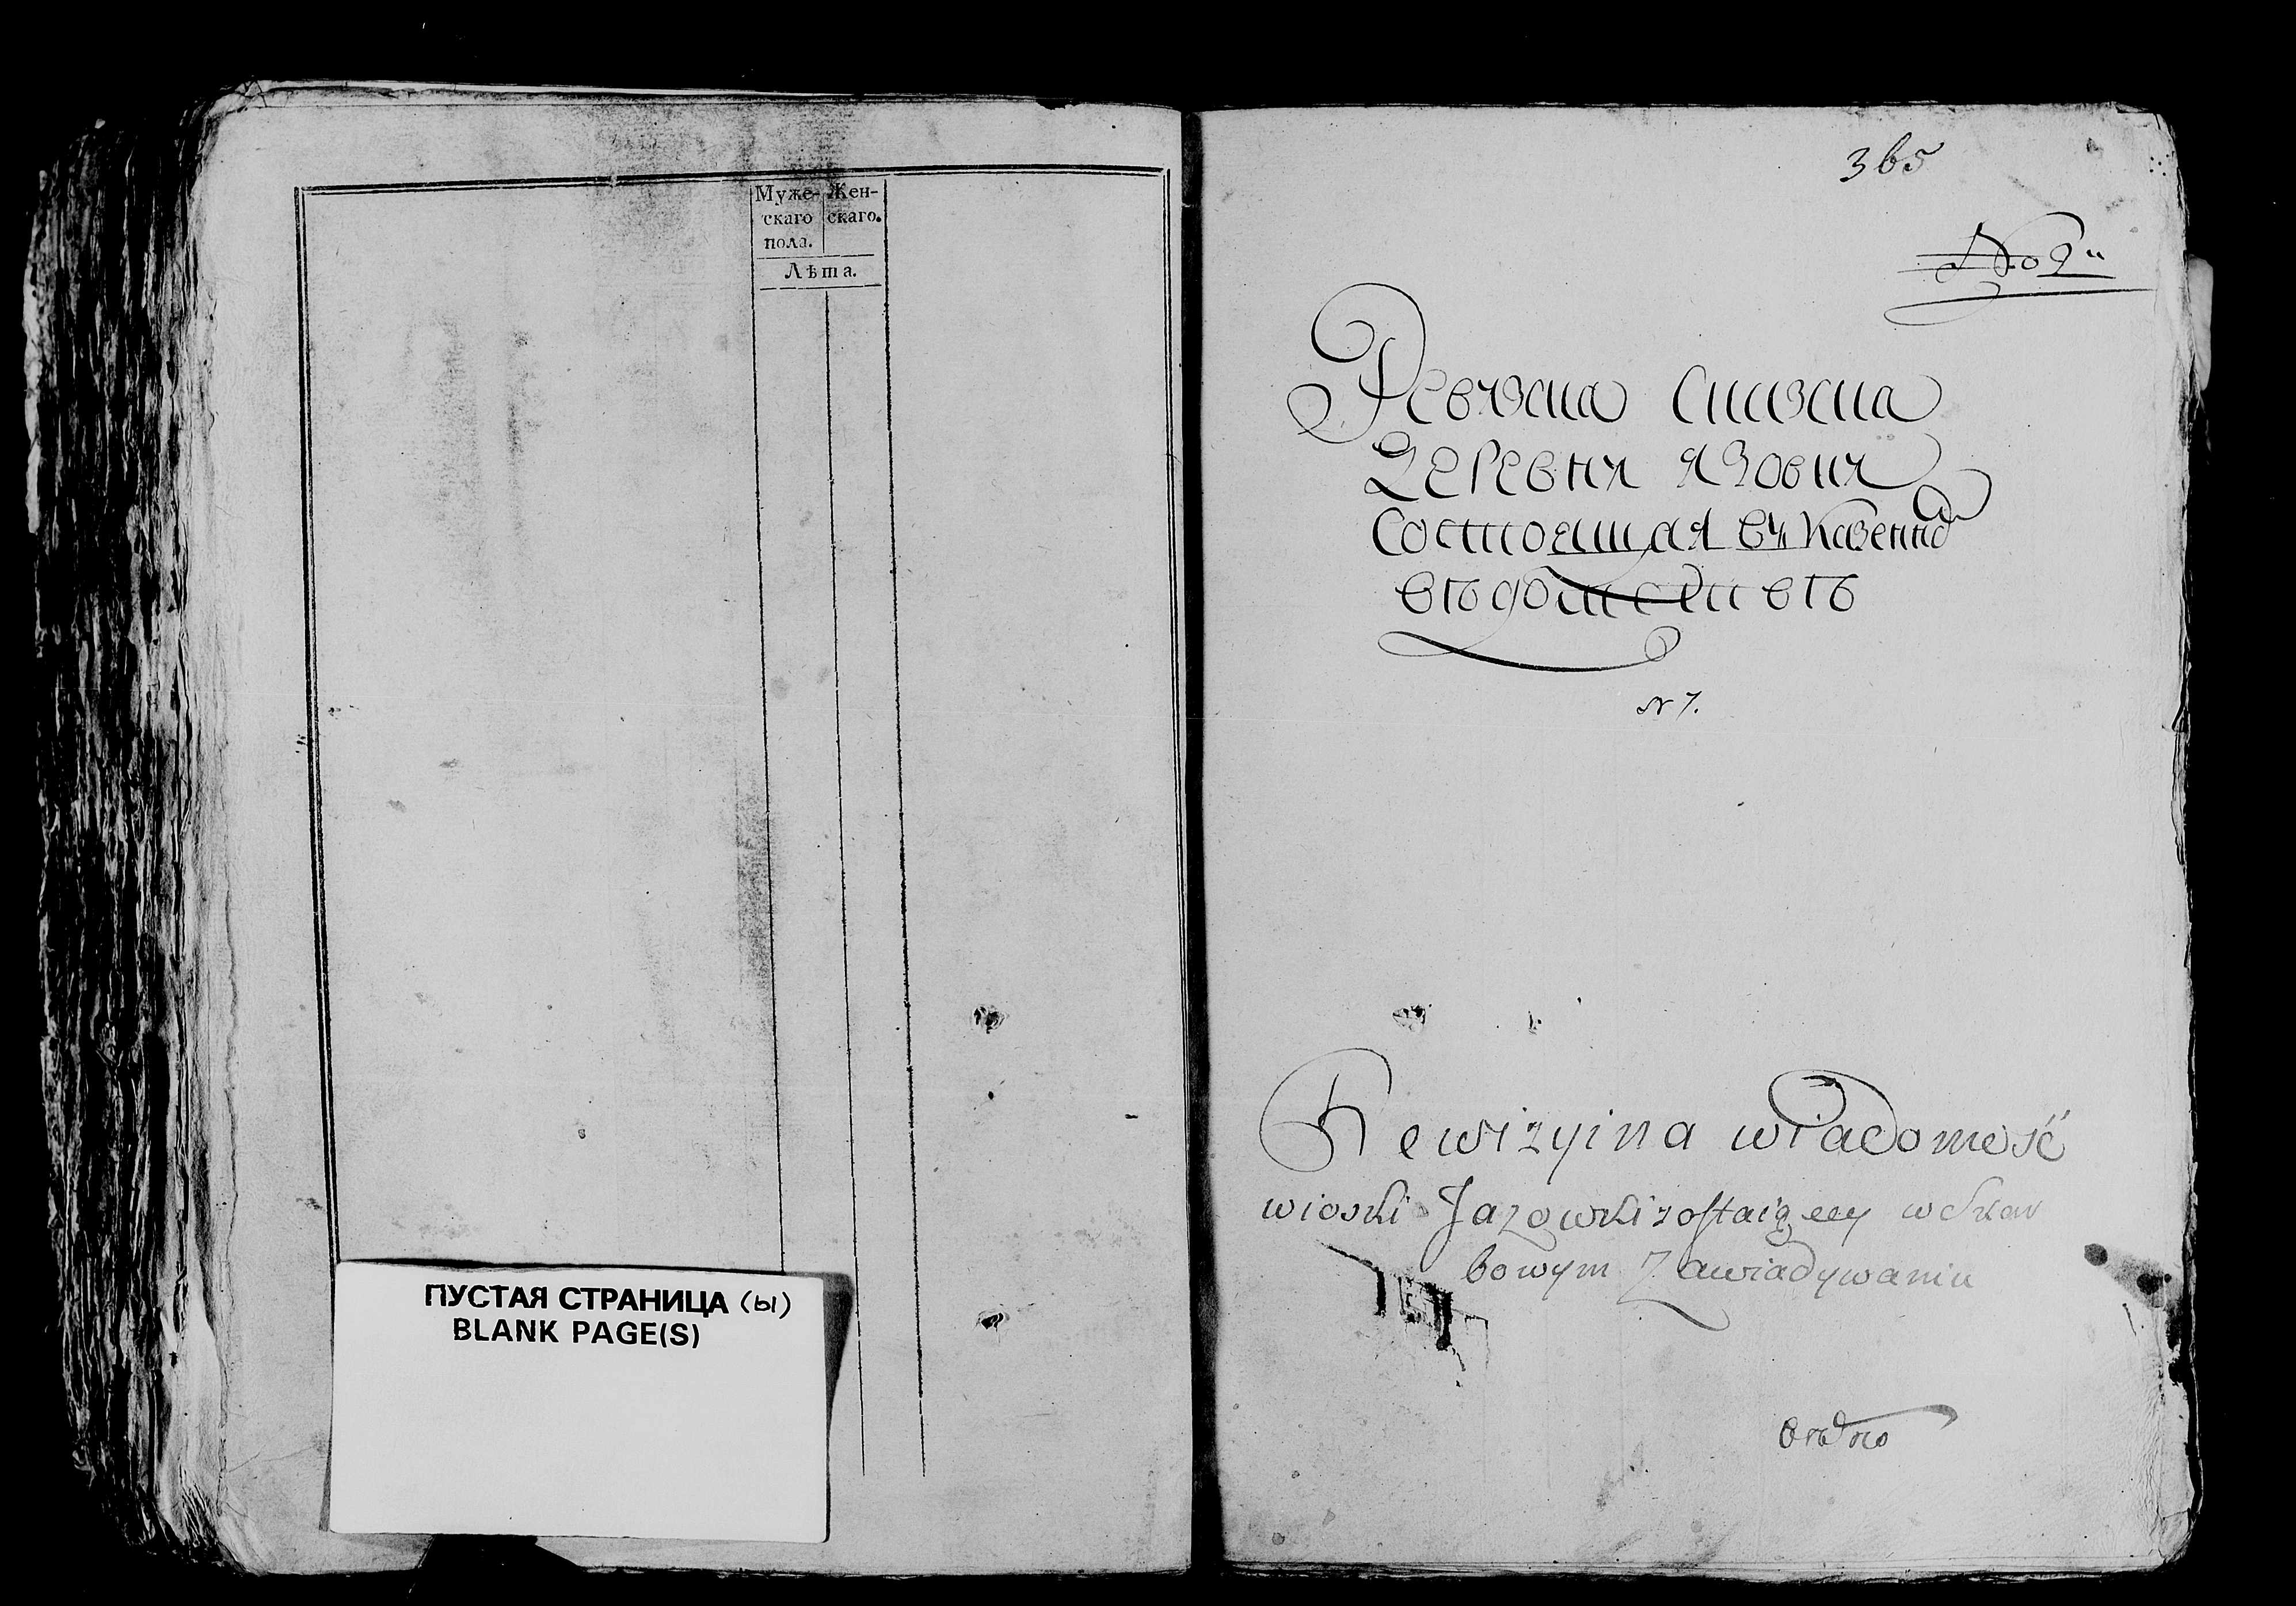 Муже- Жен-
скаго скаго.
пола.
Лѣта.
ПУСТАЯ СТРАНИЦА (ы)
BLANK PAGE(S)
365
No 9
Ревизска Сказска
Деревня Язовия
Состоящая въ Казенно
въдомсенвъ
N 7.
Rewizyina wiadomość
wioski Jazowki zostaiącey w Skar
bowym Zawiadywaniu